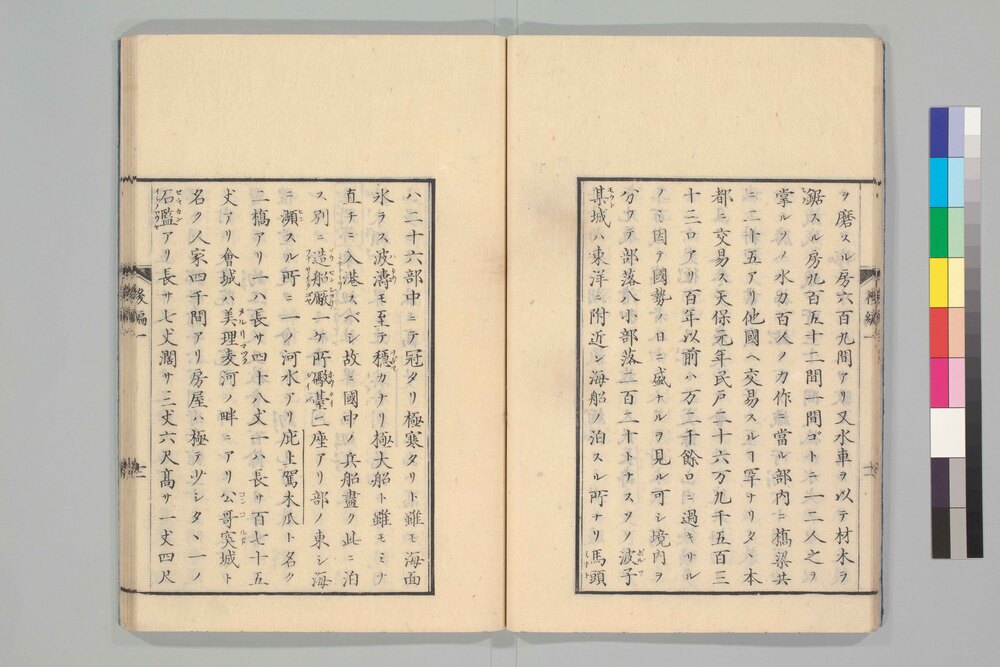 ヲ磨スル房六百九間アリ又水車ヲ以テ材木ヲ
鋸スル房九百五十二間一間ゴトニ一二人之ヲ
掌ルソノ水力百人ノ力作ニ當ル部内ニ橋梁共
ニ二十五アリ他國ヘ交易スルヿ罕ナリタヽ本
都ニ交易ス天保元年民戸二十六万九千五百三
十三口アリ百年以前ハ万二千餘口ニ過キサル
ノミ因テ國勢ノ日ニ盛ナルヲ見ル可シ境内ヲ
分ツテ部落八小部落二百二十トナスソノ波子
某城ハ東洋ニ附近シ海舶ノ泊スル所ナリ馬頭
ハ二十六部中ニテ冠タリ極寒タリト雖モ海面
氷ラス波濤モ至テ穏カナリ極大船ト雖モミナ
直チニ入港スベシ故ニ國中ノ兵船盡ク此ニ泊
ス別ニ造船厰一ケ所礟臺三座アリ部ノ東シ海
ニ瀕スル所ニ一ノ河水アリ庇上駕木瓜ト名ク
二橋アリ一ハ長サ四十八丈一ハ長サ百七十五
丈アリ會城ハ美理麥河ノ畔ニアリ公哥突城ト
名ク人家四千間アリ房屋ハ極テ少シタヽ一ノ
石檻アリ長サ七丈濶サ三丈六尺高サ一丈四尺
後編一